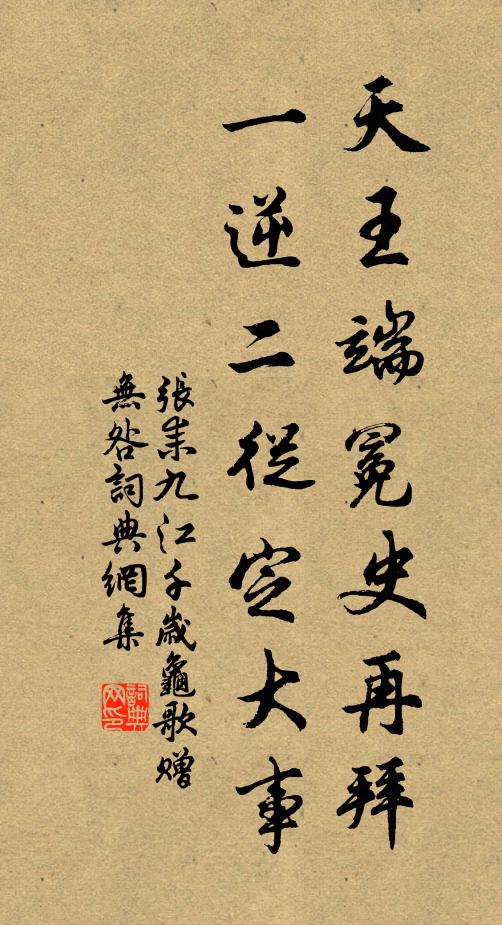 天王端冕史再拜
一逆二從定大事
張耒九江千歲龜歌贈
無咎詞典網集
詞典
网印